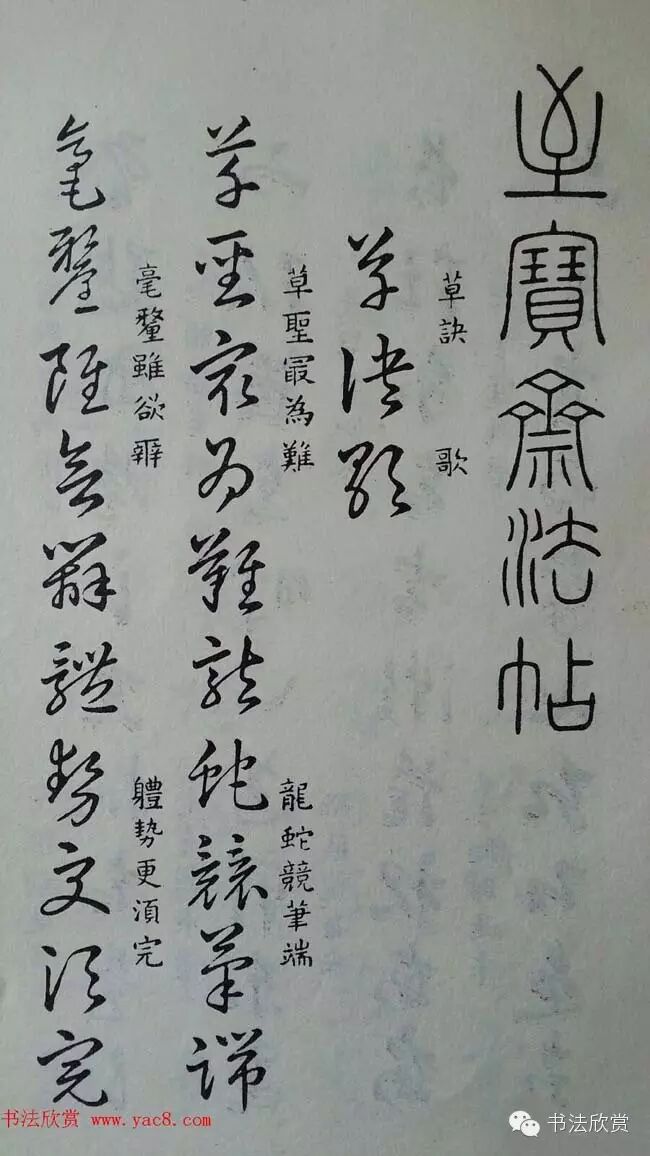 至寶齋法帖
草訣歌
草訣 歌
草聖冣為難龍蛇競筆端
草聖冣為難 龍蛇競筆端
毫釐雖欲辨體勢更須完
毫釐雖欲辨 軆勢更湏完
书法欣赏 www.yac8.com
书法欣赏